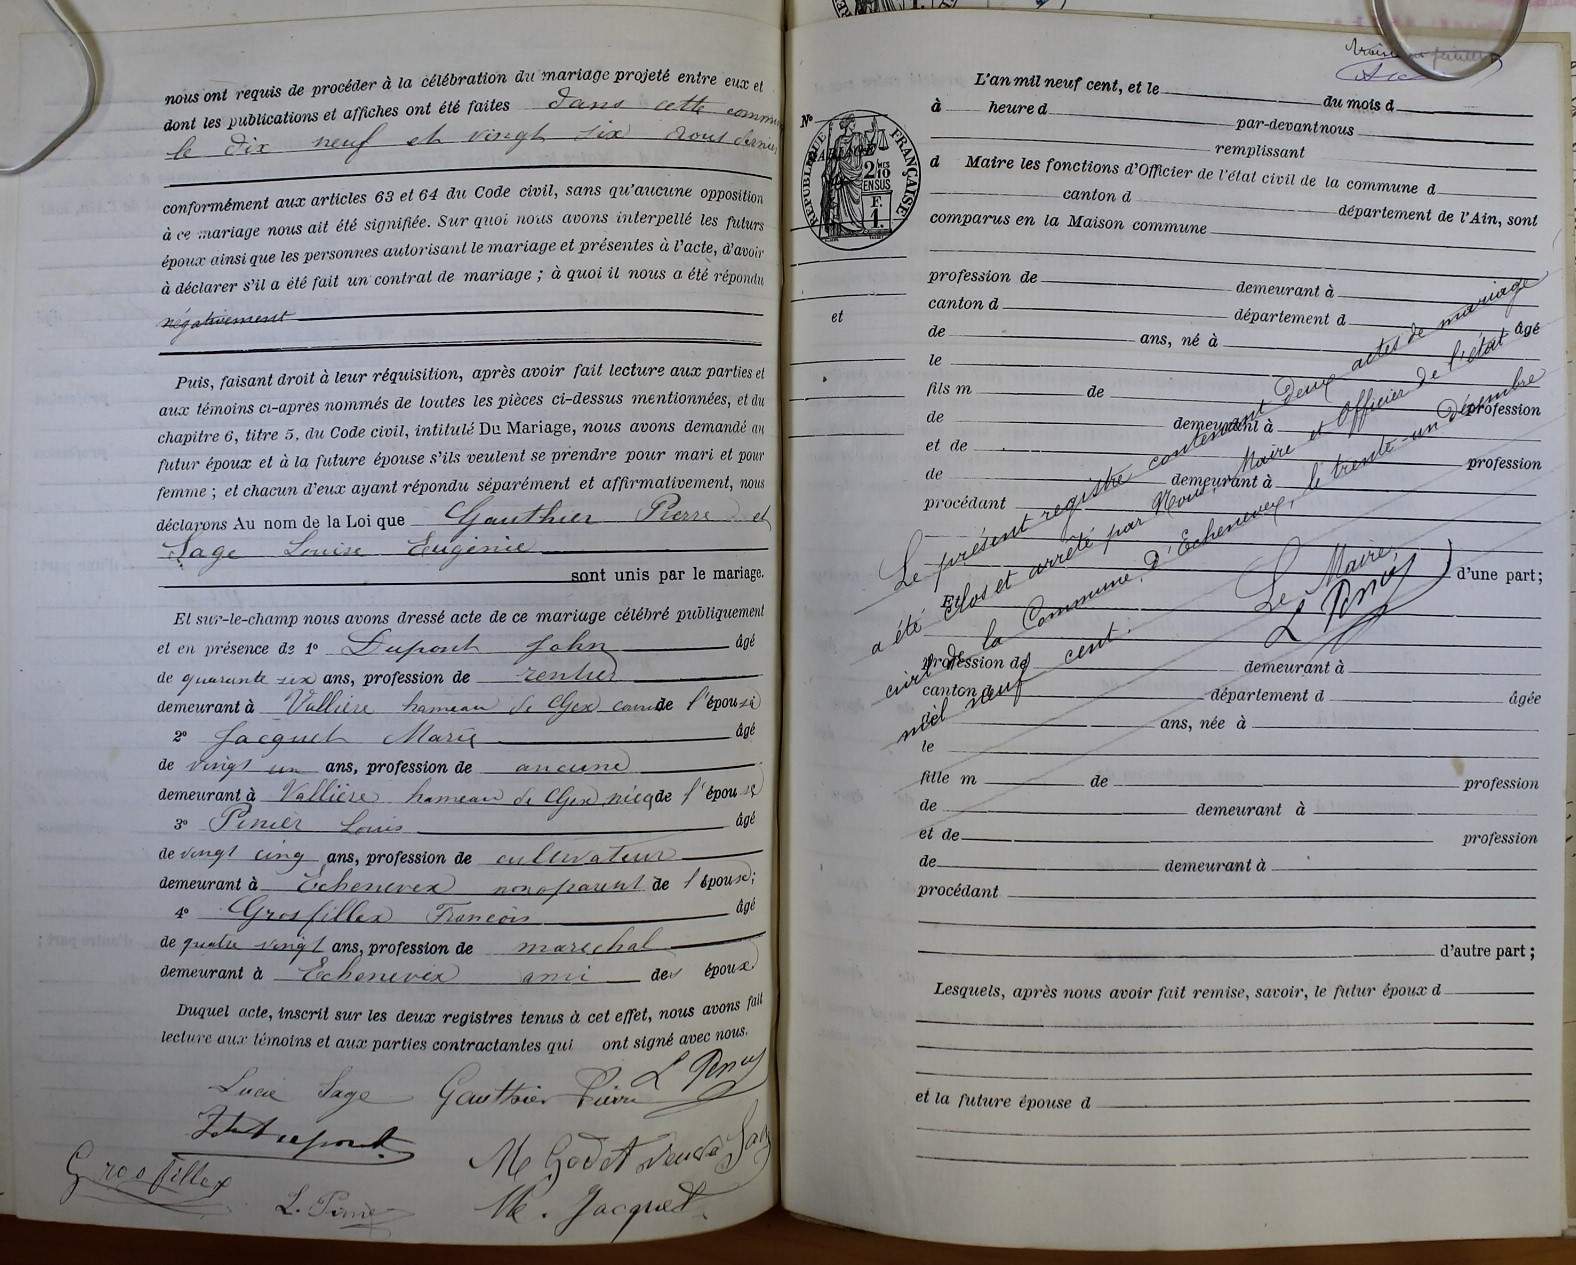 nous ont requis de procéder à la célébration du mariage projeté entre eux et
dont les publications et affiches ont été faites dans cette commu
le dix neuf et vingt six aout dernier
conformément aux articles 63 et 64 du Code civil, sans qu'aucune opposition
à ce mariage nous ait été signifiée. Sur quoi nous avons interpellé les futurs
époux ainsi que les personnes autorisant le mariage et présentes à l'acte, d'avoir
à déclarer s'il a été fait un contrat de mariage ; à quoi il nous a été répondu
négativement
Puis, faisant droit à leur réquisition, après avoir fait lecture aux parties et
aux témoins ci-après nommés de toutes les pièces ci-dessus mentionnées, et du
chapitre 6, titre 5, du Code civil, intitulé Du Mariage, nous avons demandé au
futur époux et à la future épouse s'ils veulent se prendre pour mari et pour
femme ; et chacun d'eux ayant répondu séparément et affirmativement, nous
déclarons Au nom de la Loi que Gauthier Pierre et
Sage Louise Eugénie
sont unis par le mariage.
Et sur-le-champ nous avons dressé acte de ce mariage célébré publiquement
et en présence de 1° Dupont John âgé
de quarante six ans, profession de rentier
demeurant à Vallière hameau de Gex de l'épouse
2° Jacquet Marie âgé
de vingt un ans, profession de aucune
demeurant à Vallière hameau de Gex nièce de l'épouse
3° Pinier Louis âgé
de vingt cinq ans, profession de cultivateur
demeurant à Echenevex non parent de l'épouse;
4° Grosfillex François âgé
de quatre vingt ans, profession de marechal
demeurant à Echenevex ami des époux
Duquel acte, inscrit sur les deux registres tenus à cet effet, nous avons fait
lecture aux témoins et aux parties contractantes qui ont signé avec nous.
Lucie Sage Gauthier Pierre
John Dupont
M Godet veuve Sage
Grosfillex
L. Pinier
M. Jacquet
L'an mil neuf cent, et le du mois d
à heure d par-devant nous
remplissant
d Maire les fonctions d'Officier de l'état civil de la commune d
canton d département de l'Ain, sont
comparus en la Maison commune
N°
MARIAGE
RÉPUBLIQUE FRANÇAISE
2/10
EN SUS
F.
1.
et
profession de demeurant à
canton d département d âgé
de ans, né à
le
fils m de profession
de demeurant à
et de profession
de demeurant à
procédant
d'une part;
Et
profession de demeurant à
canton d département d âgée
de ans, née à
le
fille m de profession
de demeurant à
et de profession
de demeurant à
procédant
d'autre part ;
Lesquels, après nous avoir fait remise, savoir, le futur époux d
et la future épouse d
Le présent registre contenant deux actes de mariage
a été clos et arrêté par Nous, Maire et Officier de l'état
civil de la Commune, D'Echenevex, le trente-un Décembre
mil neuf cent.
Le Maire,